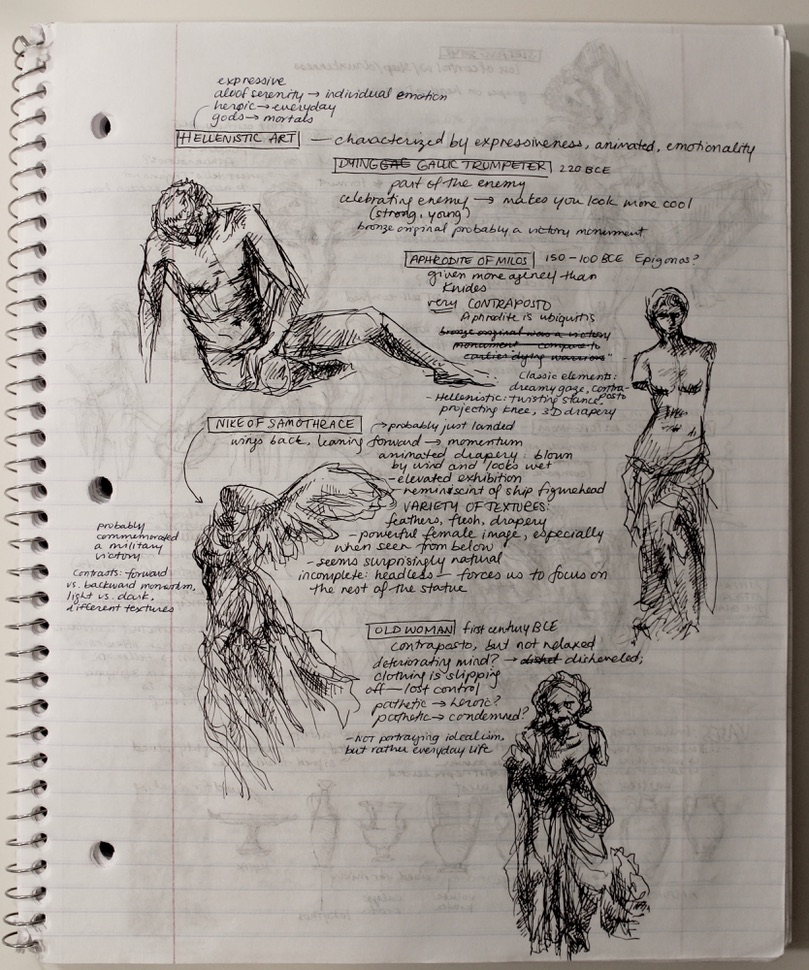 expressive
aloof serenity → individual emotion
heroic → everyday
gods → mortals
HELLENISTIC ART — characterized by expressiveness, animated, emotionality
DYING GAE GALLIC TRUMPETER 220 BCE
part of the enemy
celebrating enemy → makes you look more cool
(strong, young)
bronze original probably a victory monument
APHRODITE OF MILOS 150-100 BCE Epigonos?
given more agency than
Knides
very CONTRAPOSTO
Aphrodite is ubiquitis
bronze original was a victory
monument - compare to
earlier dying warriors"
Classic elements:
dreamy gaze, contra-
posto
- Hellenistic: twisting stance,
projecting knee, 3D drapery
NIKE OF SAMOTHRACE → probably just landed
wings back, leaning forward → momentum
animated drapery: blown
by wind and looks wet
- elevated exhibition
reminiscint of ship figurehead
VARIETY OF TEXTURES:
feathers, flesh, drapery
- powerful female image, especially
when seen from below
- seems surprisingly natural
incomplete: headless — forces us to focus on
the rest of the statue
probably
commemorated
a military
victory
Contrasts: forward
vs. backward momentum,
light vs. dark,
different textures
OLD WOMAN first century BCE
contraposto, but not relaxed
deteriorating mind? → disheveled;
clothing is slipping
off — lost control
pathetic → heroic?
pathetic → condemned?
- NOT portraying idealism,
but rather everyday life